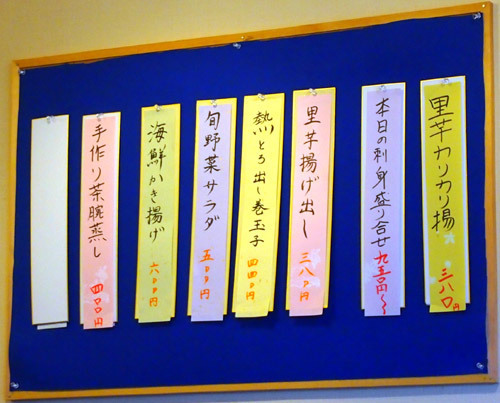 里芋カリカリ揚 三八〇円
本日の刺身盛り合せ 九五〇円〜
里芋揚げ出し 三八〇円
熱とろ出し巻玉子 四四〇円
旬野菜サラダ 五〇〇円
海鮮かき揚げ 六〇〇円
手作り茶腕蒸し 四〇〇円